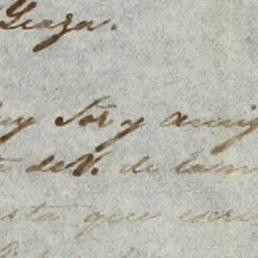 Geaga.
uy Sor y amig
de V. de la
sta que escri